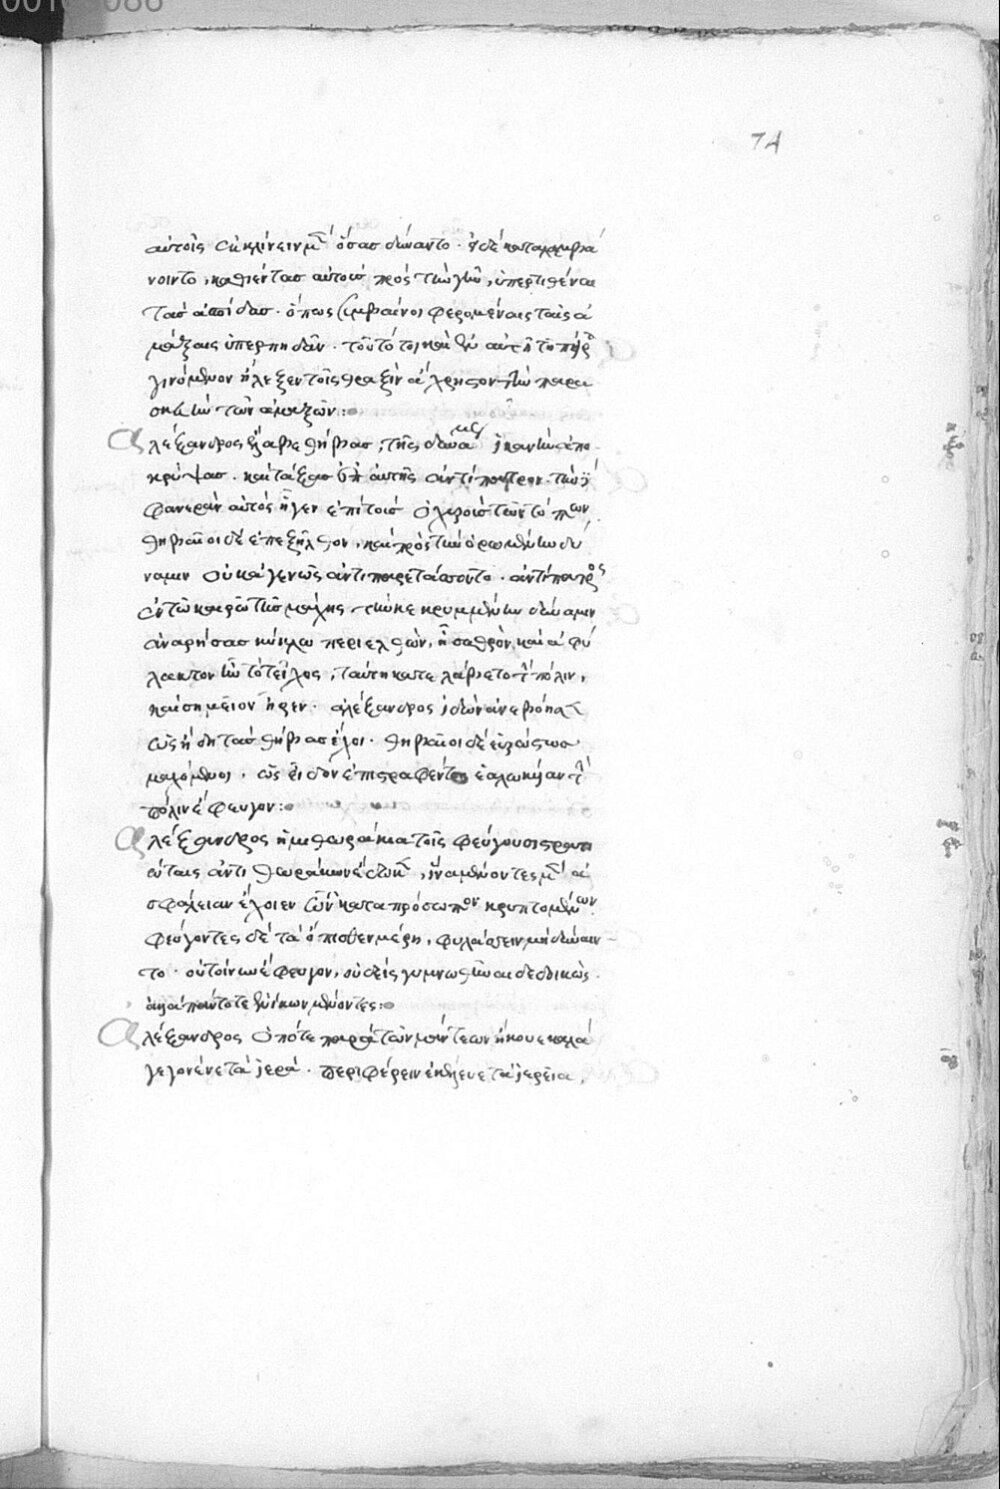 74
αὐτοῖς ἐκκλίνειν μὲν ὅσας δύναιντο · εἰ δὲ καταλαμβά
νοιντο, καθιέντας αὑτοὺς πρὸς τὴν γῆν, ὑπερτιθέναι
τὰς ἀσπίδας · ὅπως ἐμβαίνοι φερομέναις ταῖς ἁ
μάξαις ὑπερπηδᾶν · τοῦτό τοι καὶ ἐν αὐτῆ τῆ πείρᾳ
γινόμενον ἤλεξεν τοῖς θραξὶν ἄχρηστον τὴν παρα
σκευὴν τῶν ἁμαξῶν :
Ἀλέξανδρος ἔλαβε θήβας, τῆς δυνάμεως ἱκανὴν ἀπο
κρύψας · καὶ τάξας ἐπ' αὐτῆς ἀντίπατρον · τὴν
φανερὰν αὐτὸς ἦγεν ἐπὶ τοὺς ὀχυροὺς τῶν τόπων
θηβαῖοι δὲ ἐπεξῆλθον, καὶ πρὸς τὴν ὁρωμένην δύ
ναμιν οὐκ ἀγενῶς ἀντιπαρετάσσοντο · ἀντίπατρος
ἐν τῶ καιρῶ τῆς μάχης τὴν κεκρυμμένην δύναμιν
ἀναστήσας κύκλω περιελθὼν, ἧ σαθρὸν καὶ ἀφύ
λακτον ἦν τὸ τεῖχος, ταύτη κατελάβετο τὴν πόλιν,
καὶ σημεῖον ἦρεν · ἀλέξανδρος ἰδὼν ἀνεβόησεν
ὡς ἤδη τὰς θήβας ἔχοι · θηβαῖοι δὲ εὐρώστως
μαχόμενοι · ὡς εἶδον ἐπιστραφέντες ἑαλωκυῖαν τὴν
πόλιν ἔφευγον :
Ἀλέξανδρος ἡμιθωράκια τοῖς φεύγουσι στρατι
ώταις ἀντὶ θωράκων ἔδωκεν, ἵνα μένοντες μὲν ἀ
σφάλειαν ἔχοιεν τῶν κατὰ πρόσωπον κρυπτομένων
φεύγοντες δὲ τὰ ὄπισθεν μέρη, φυλάσσειν μὴ δύναιν
το · οὔτοίνυν ἔφευγον, οὐδεὶς γυμνωθῆναι δεδοικὼς
ἀλλὰ πάντοτε ἐνίκων μένοντες :
Ἀλέξανδρος ὁπότε παρὰ τῶν μάντεων ἤκουε καλὰ
γεγονέναι τὰ ἱερά · περιφέρειν ἐκέλευε τὰ ἱερεῖα,